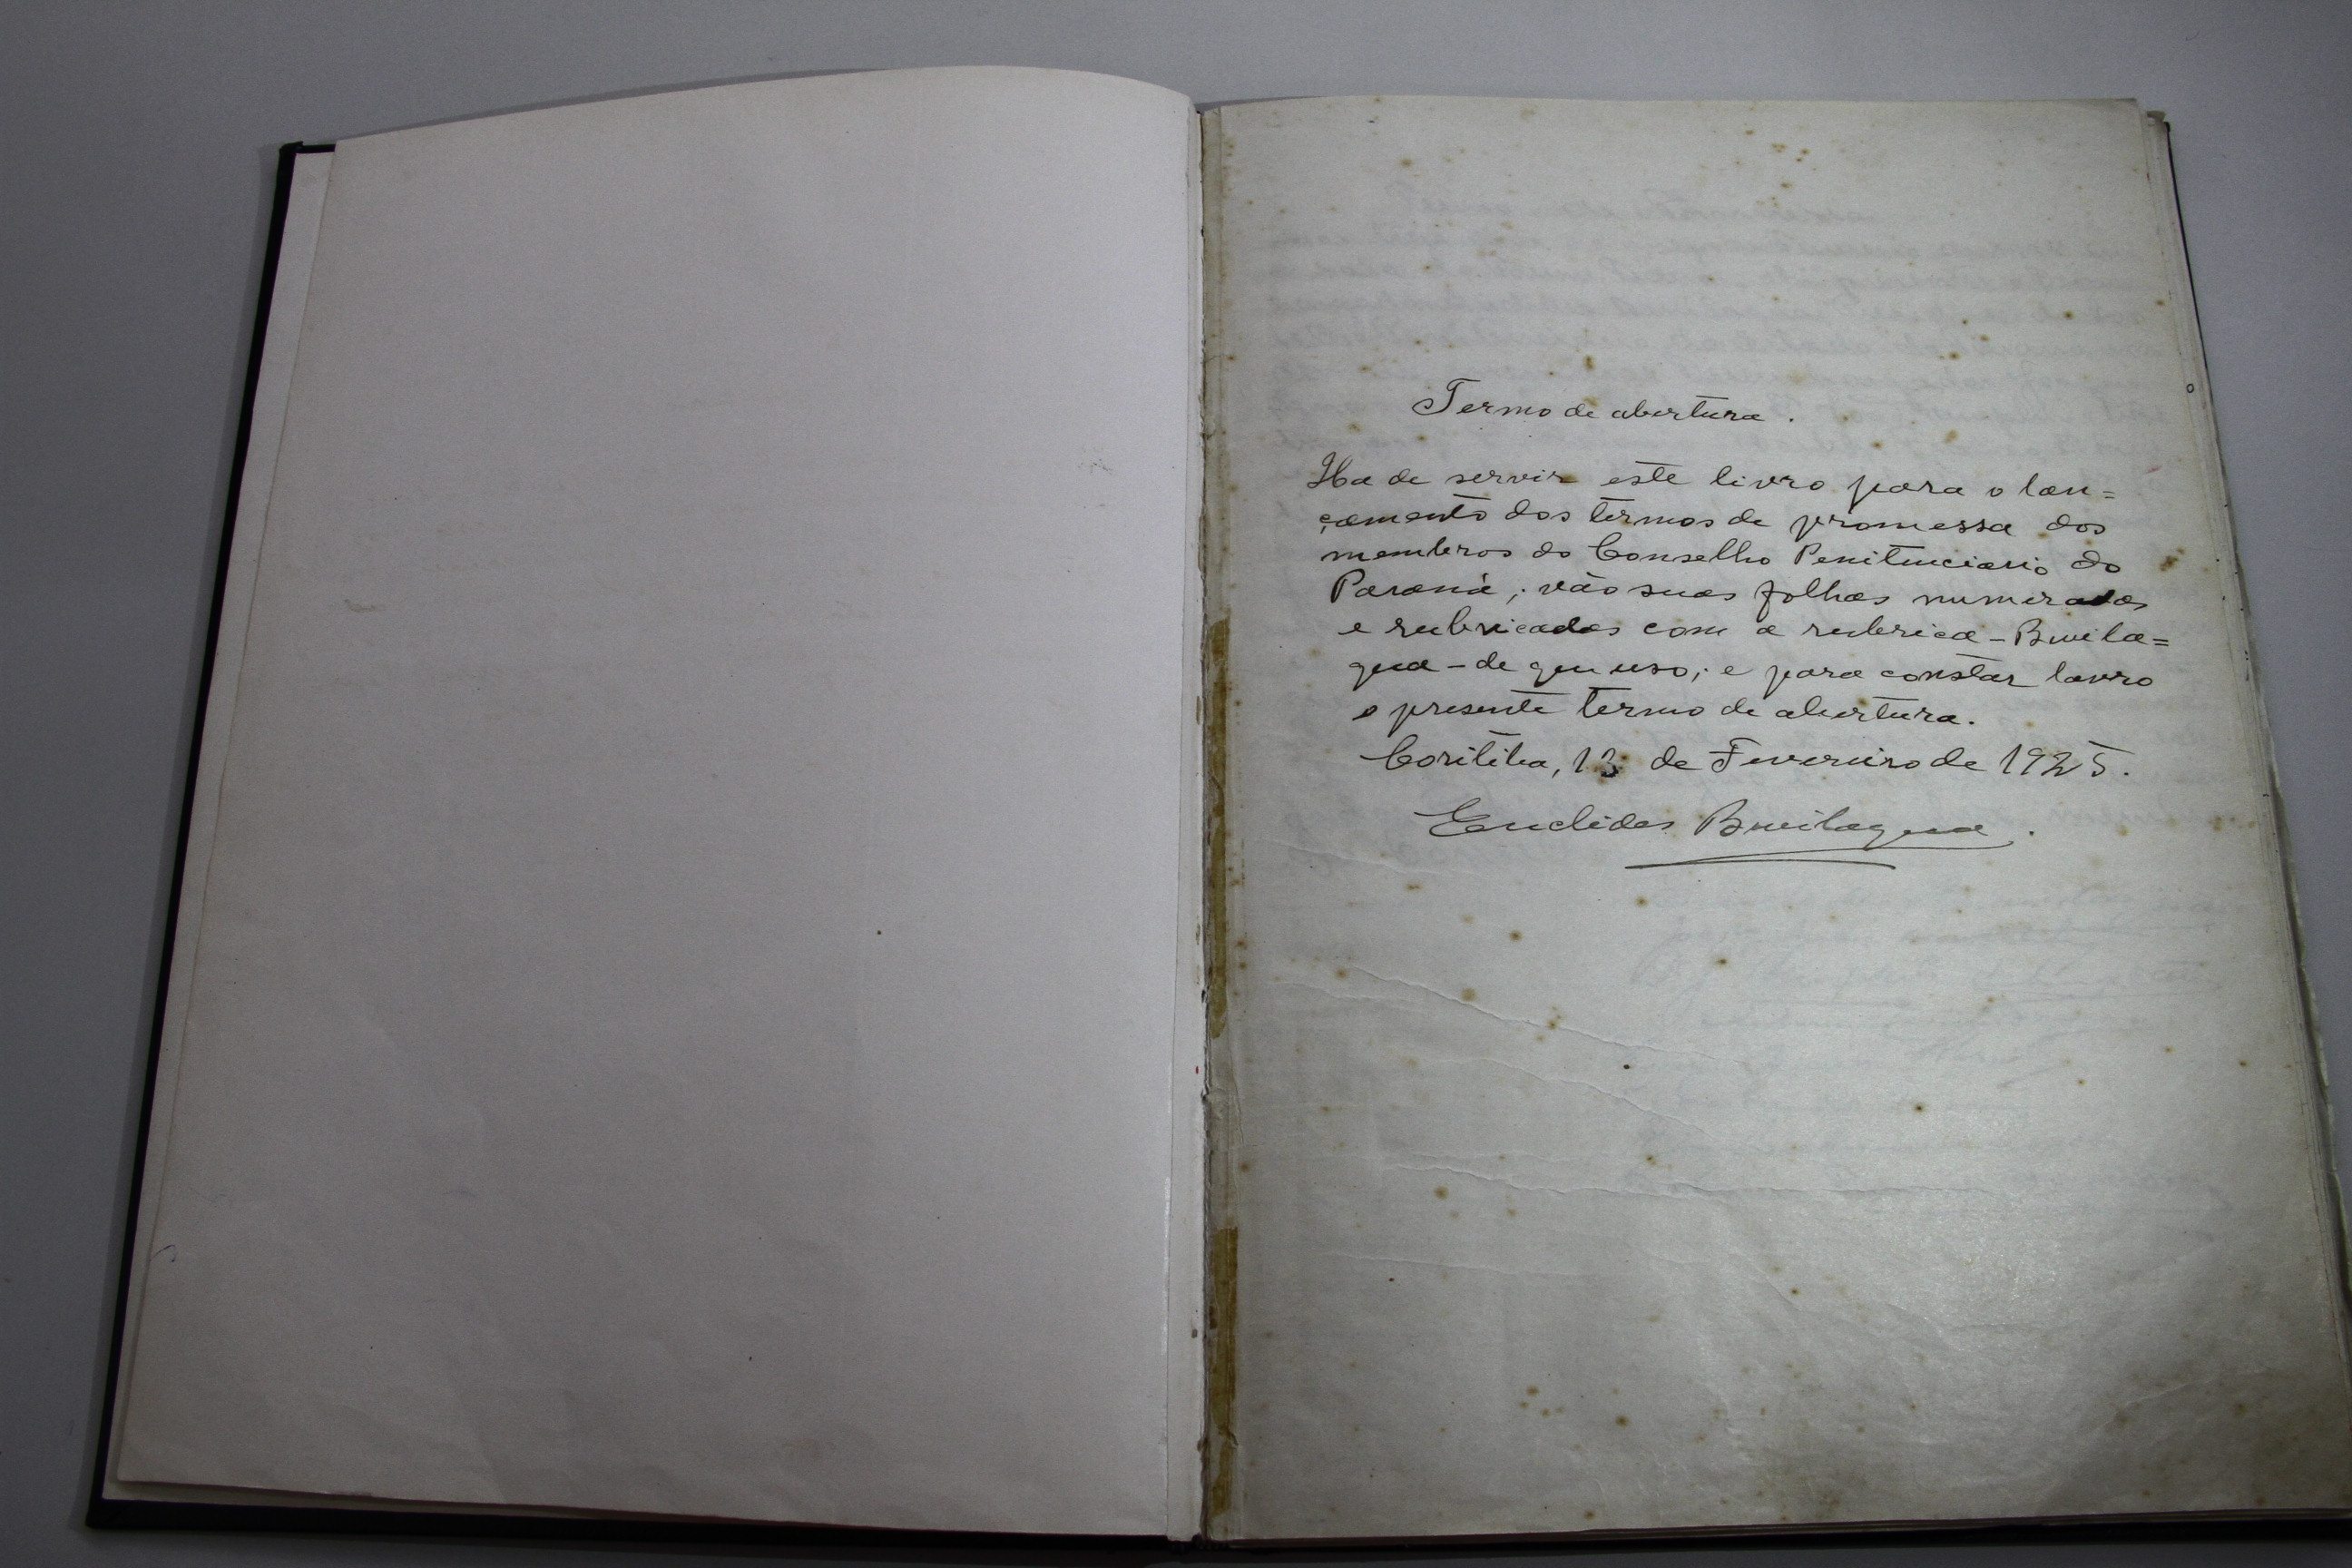 Termo de abertura.
Ha de servir este livro para o lan=
çamento dos termos de promessa dos
membros do Conselho Penitenciario do
Paraná; vão suas folhas numeradas
e rubricadas com a rubrica - Bevila=
qua - de que uso; e para constar lavro
o presente termo de abertura.
Coritiba, 13 de Fevereiro de 1925.
Euclides Bevilaqua.